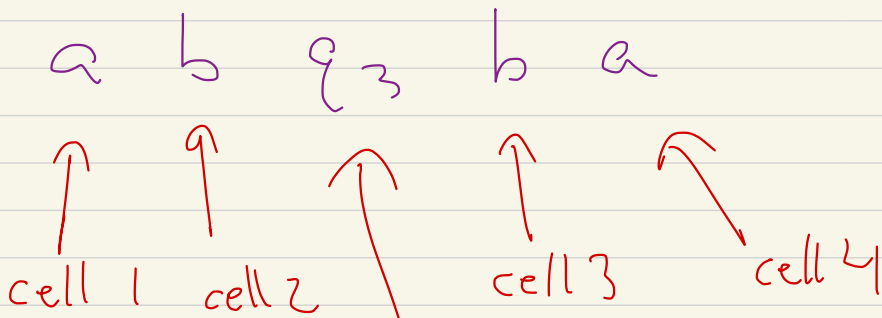 a b q₃ b a
cell 1 cell 2 cell 3 cell 4